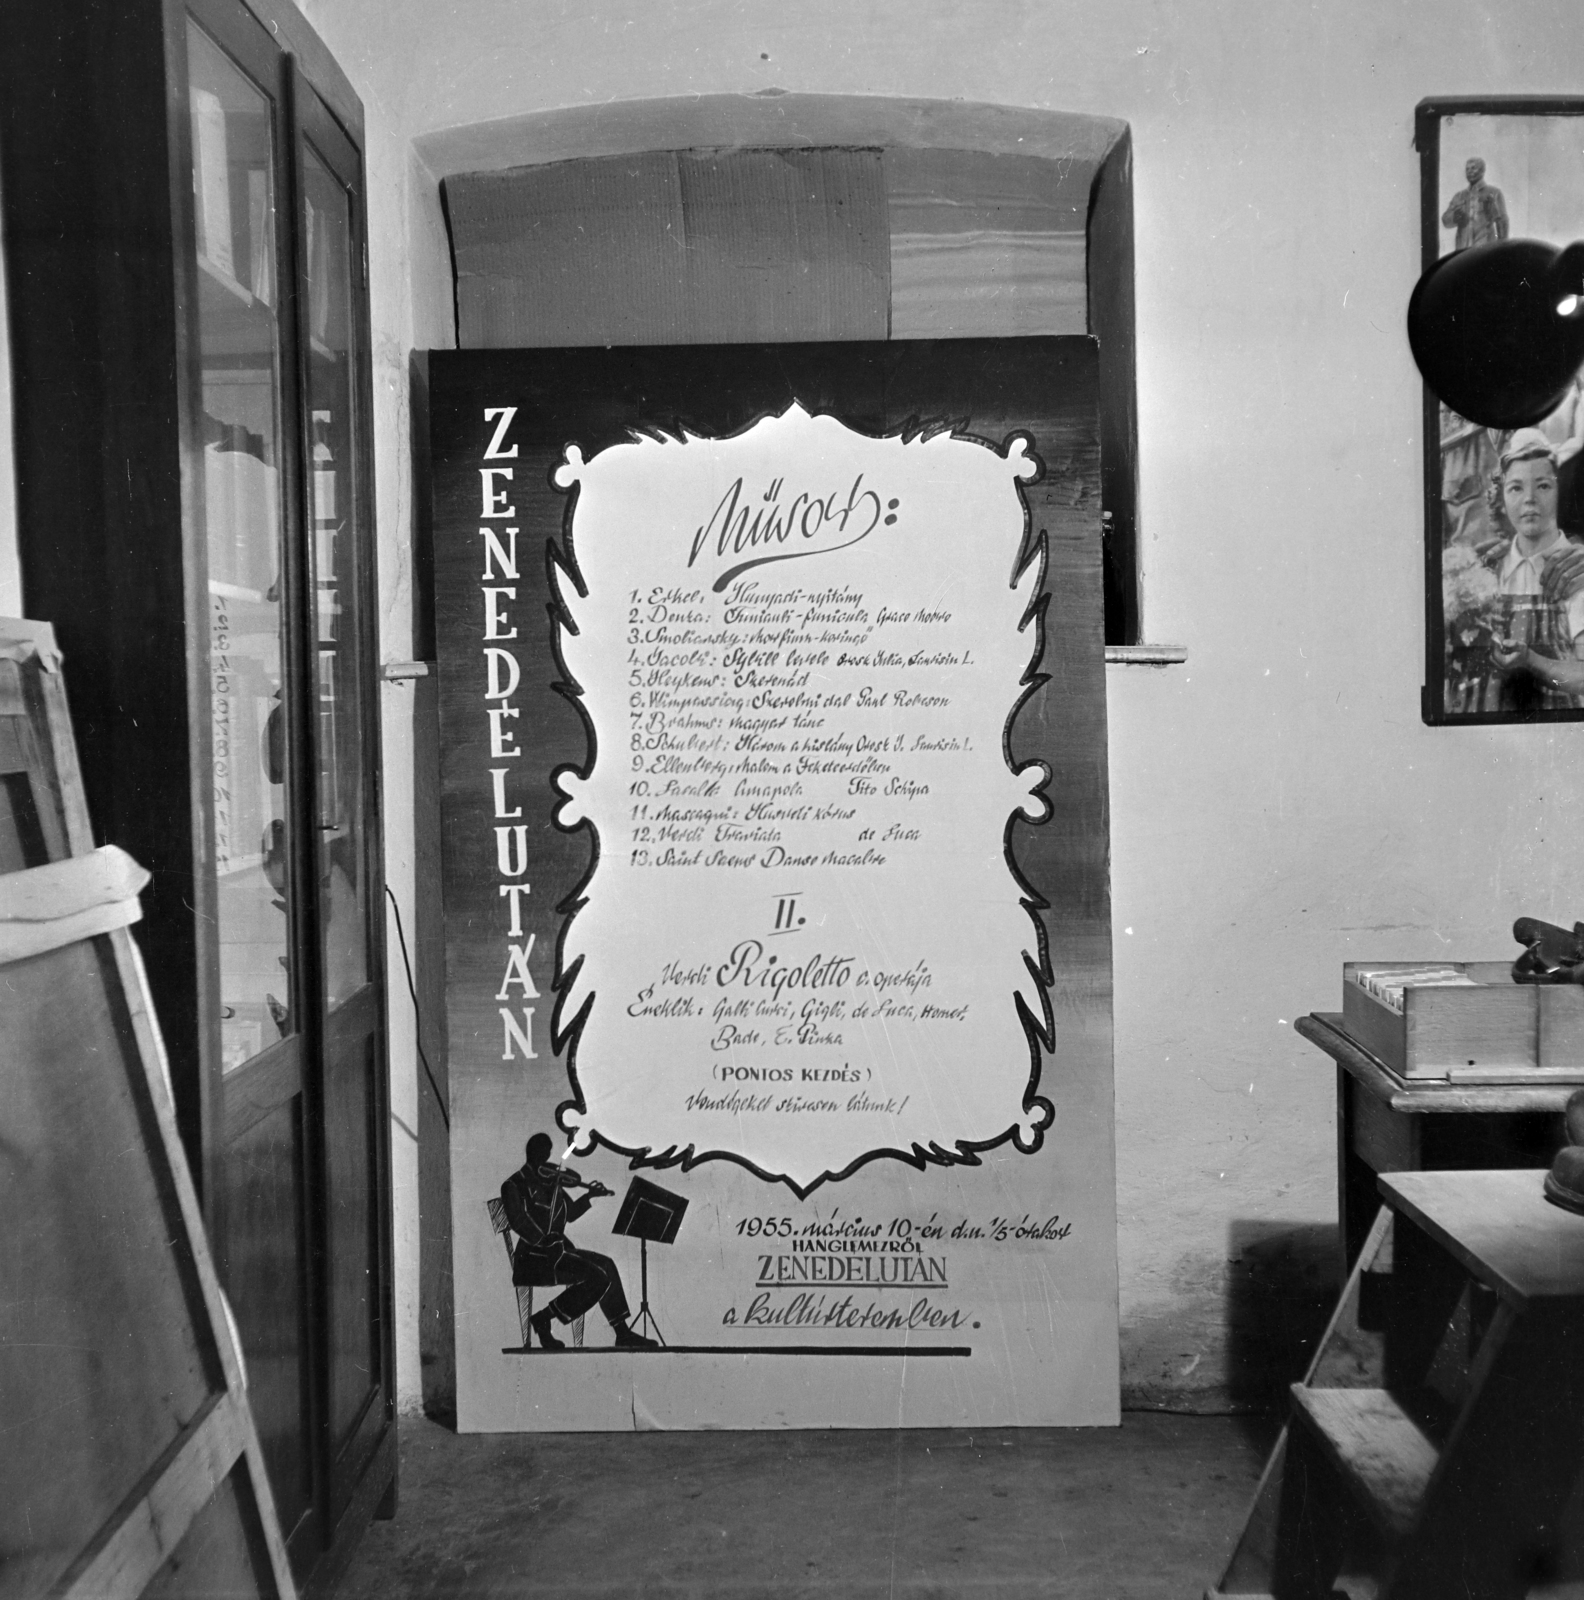 ZENEDELUTÁN
Műsor:
1. Erkel: Hunyadi-nyitány
2. Denza: Funiculi-funicula Grace Moore
3. Smolianszky: Morfium-keringő
4. Jacobi: Sybill levele Orosz Júlia, Laurisin L.
5. Heykens: Szerenád
6. Wimpassing: Szerelmi dal Paul Robeson
7. Brahms: Magyar tánc
8. Schubert: Három a kislány Orosz J. Laurisin L.
9. Ellenberg: Malom a Feketeerdőben
10. Lacalle Amapola Tito Schipa
11. Mascagni: Húsvéti kórus
12. Verdi Traviata de Luca
13. Saint Saens Danse Macabre
II.
Verdi Rigoletto c. operája
Éneklik: Galli Curci, Gigli, de Luca, Homer,
Bade, E. Pinza
(PONTOS KEZDÉS)
Vendégeket szívesen látunk!
1955. március 10-én d.u. 1/5-órakor
HANGLEMEZRŐL
ZENEDELUTÁN
a kultúrteremben.